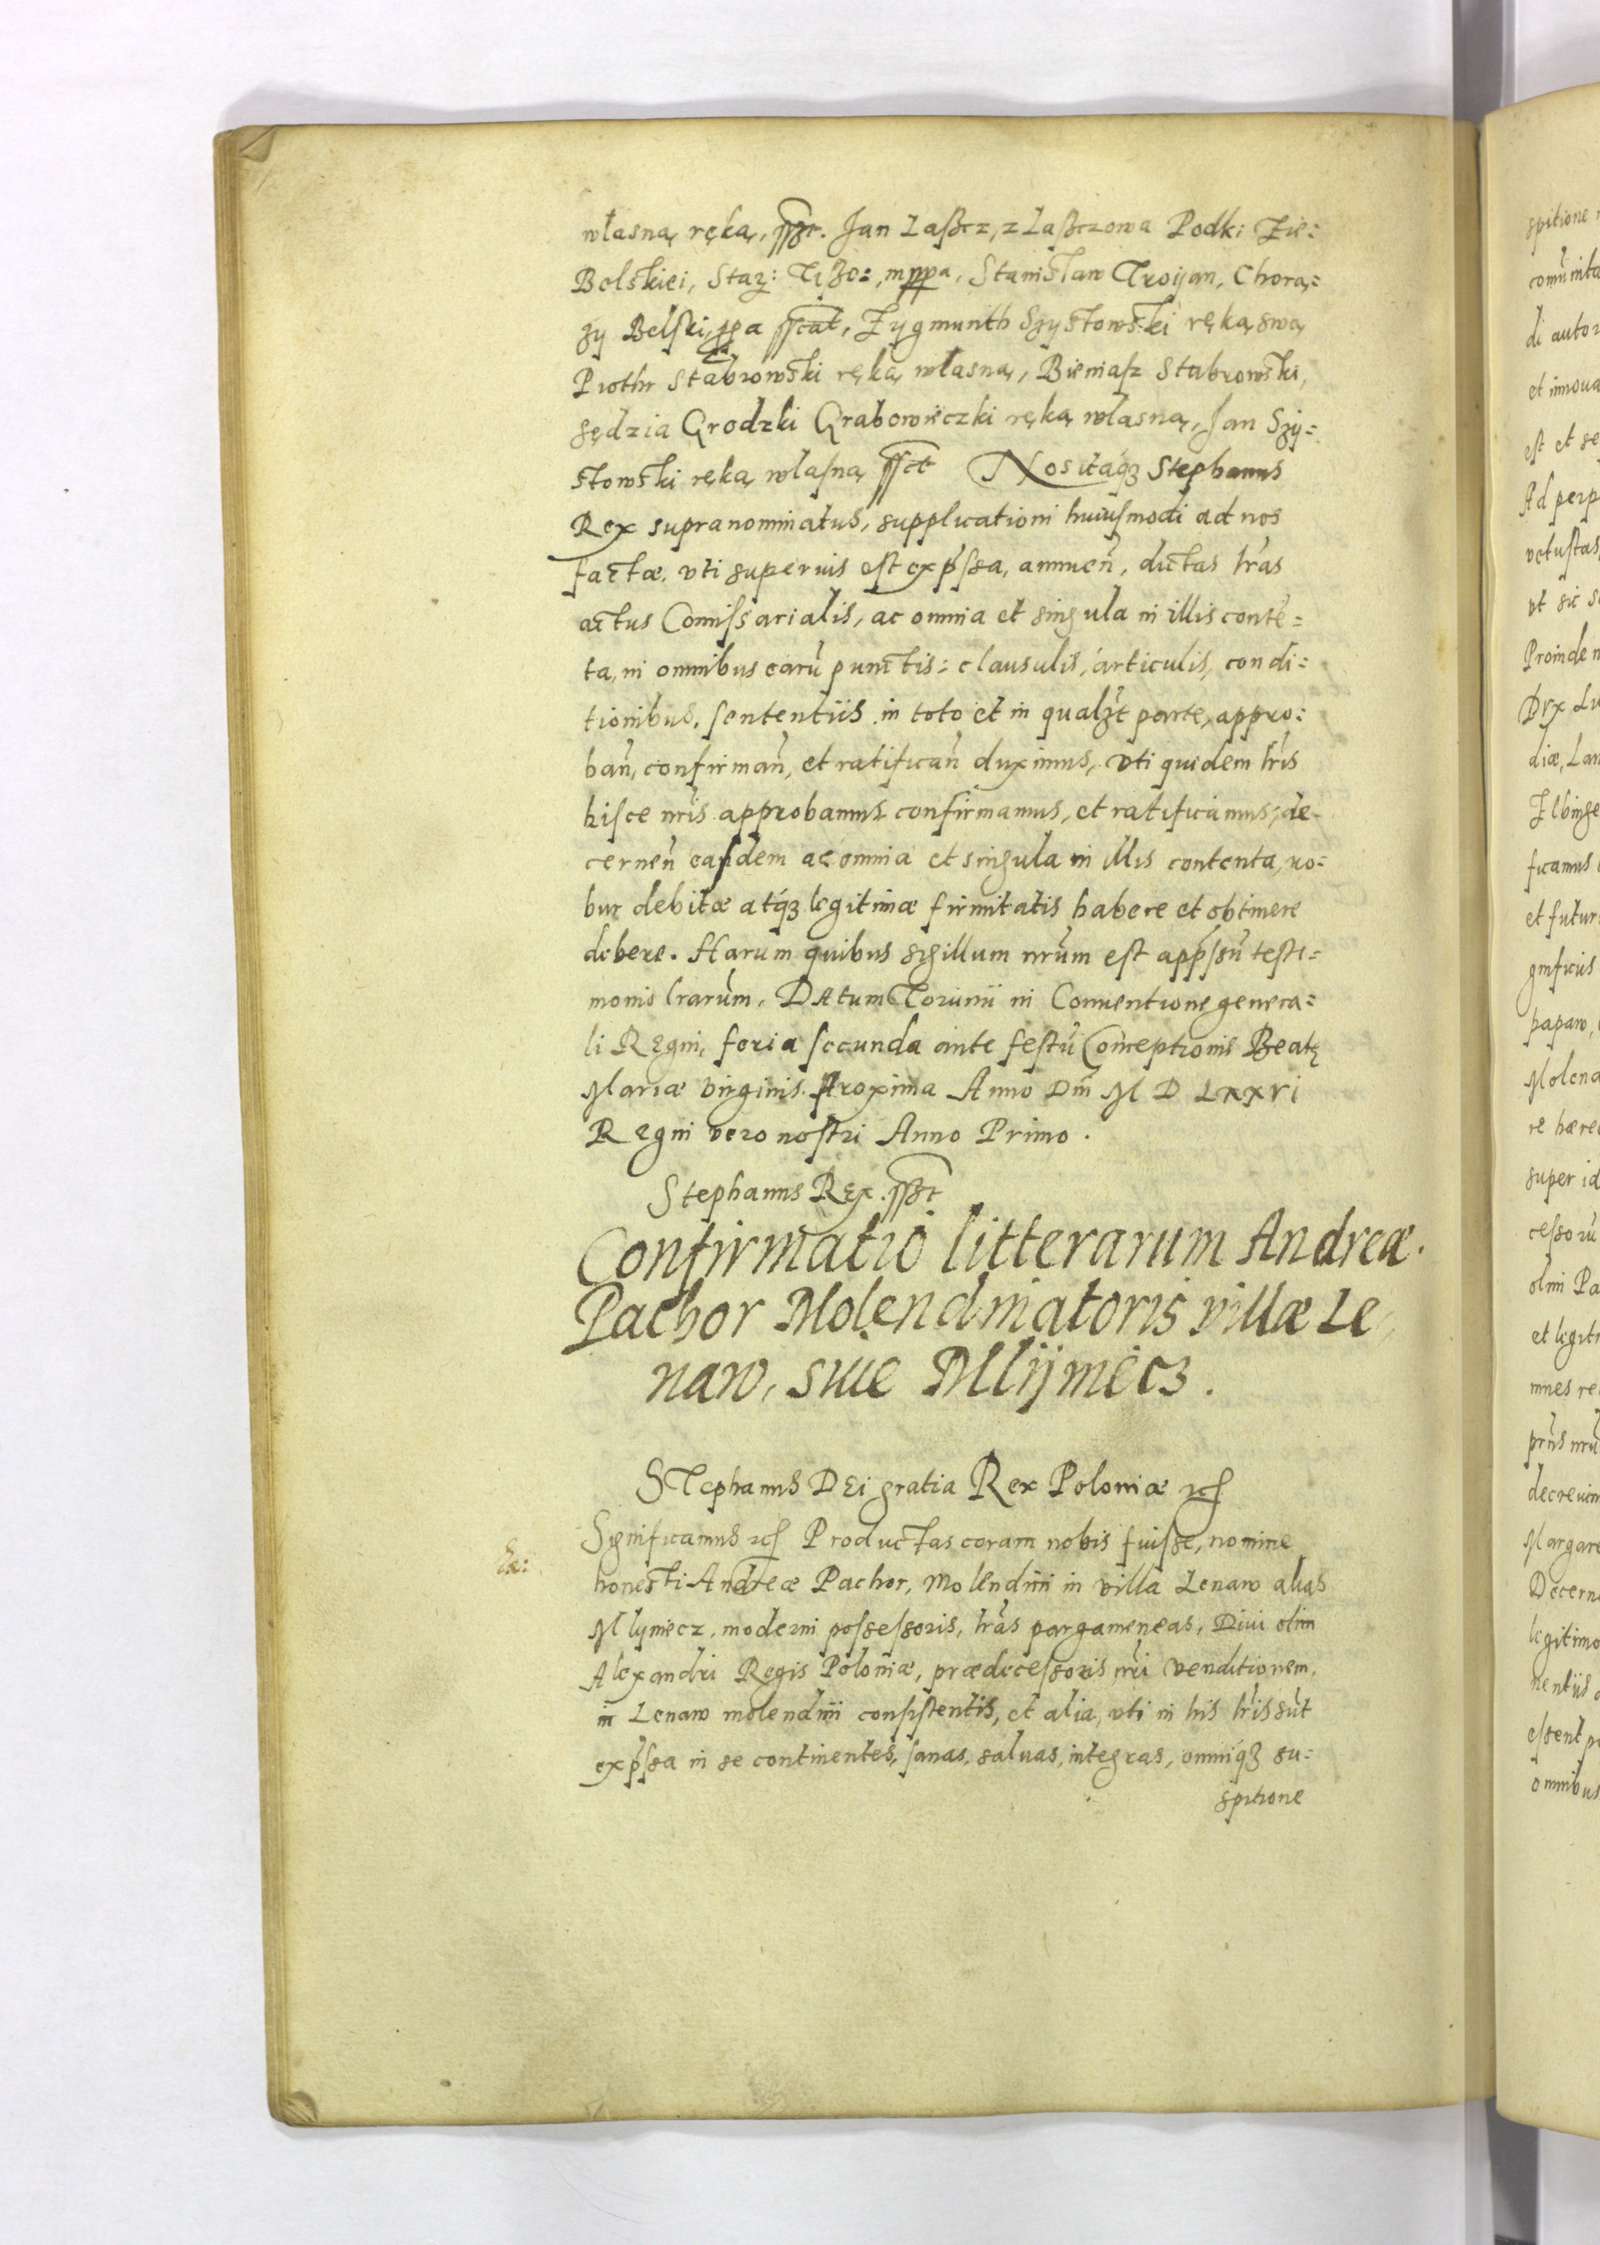 własną ręką, sst. Jan Laßcz, z Laßczowa Podk: Zie=
Belskiei, Star: Tiße=, mppa, Stanisław Troijan, Chorą=
zy Belski, ppa sscat, Zygmunth Szystowski ręką swą
Piothr Stabrowski ręką własną, Bieniasz Stabrowski,
sędzia Grodzki Grabowieczki ręką własną, Jan Szy=
stowski ręką własną sst Nos itaq3 Stephanus
Rex supranominatus, supplicationi huiusmodi ad nos
factæ, vti superius est exp̃ssa, annueñ, dictas lr̃as
actus Com̃issarialis, ac omnia et singula in illis conte=
ta, in omnibus earũ punctis: clausulis, articulis, condi=
tionibus, sententiis in toto et in qualꝫt parte, appro=
bañ, confirmañ, et ratificañ duximus, vti quidem lr̃is
hisce nr̃is approbamus confirmamus, et ratificamus, de-
cerneñ easdem ac omnia et singula in illis contenta, ro=
bur debitæ atq́3 legitimæ firmitatis habere et obtinere
debere. Harum quibus sigillum nr̃um est app̃ssũ testi=
monio lrarũm, Datum Torunii in Conuentione genera=
li Regni, feria secunda ante festũ Conceptionis Beatę
Mariæ Virginis Proxima Anno Dñi M D LXXVI
Regni vero nostri Anno Primo.
Stephanus Rex. sst
Confirmatio litterarum Andreæ
Pachor Molendinatoris villæ Le
naw, siue Mlijmiecz.
STephanus DEi gratia Rex Poloniæ etc
Ex:
Significamus etc Productas coram nobis fuisse, nomine
honesti Andreæ Pachor, Molendini in villa Lenaw alias
Mlymiecz, moderni possessoris, lr̃as pargameneas, Diui olim
Alexandri Regis Poloniæ, prædecessoris nr̃i venditionem,
in Lenaw molendini consistentis, et alia, vti in his lr̃is sũt
exp̃ssa in se continentes, sanas, saluas, integras, omniq́3 su=
spitione